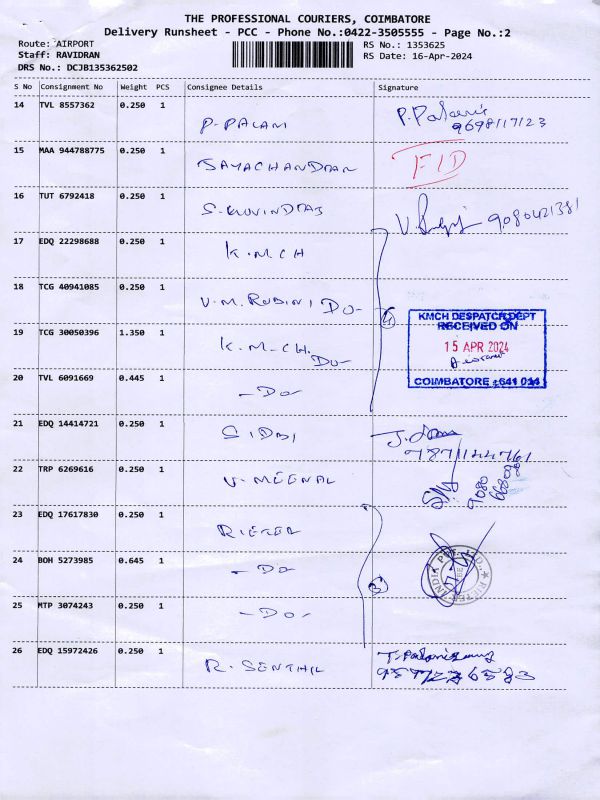 THE PROFESSIONAL COURIERS, COIMBATORE
Delivery Runsheet - PCC - Phone No.:0422-3505555 - Page No.:2
Route: AIRPORT RS No.: 1353625
Staff: RAVIDRAN RS Date: 16-Apr-2024
DRS No.: DCJB135362502
S No Consignment No Weight PCS Consignee Details Signature
14 TVL 8557362 0.250 1 P. PALANI
9698117123
15 MAA 944788775 0.250 1 JAYACHANDRAN
16 TUT 6792418 0.250 1 S. GOVINDRAJ 9080421381
17 EDQ 22298688 0.250 1 K.M.CH
18 TCG 40941085 0.250 1 V.M. RUBINI DO- 4
KMCH DESPATCH DEPT
RECEIVED ON
15 APR 2024
COIMBATORE - 641 014
19 TCG 30050396 1.350 1 K.M-CH. DO-
20 TVL 6091669 0.445 1 -DO-
21 EDQ 14414721 0.250 1
22 TRP 6269616 0.250 1 V. MEENAL
23 EDQ 17617830 0.250 1 RIETER
24 BOH 5273985 0.645 1 -DO- 3
25 MTP 3074243 0.250 1 -DO-
26 EDQ 15972426 0.250 1 R. SENTHIL